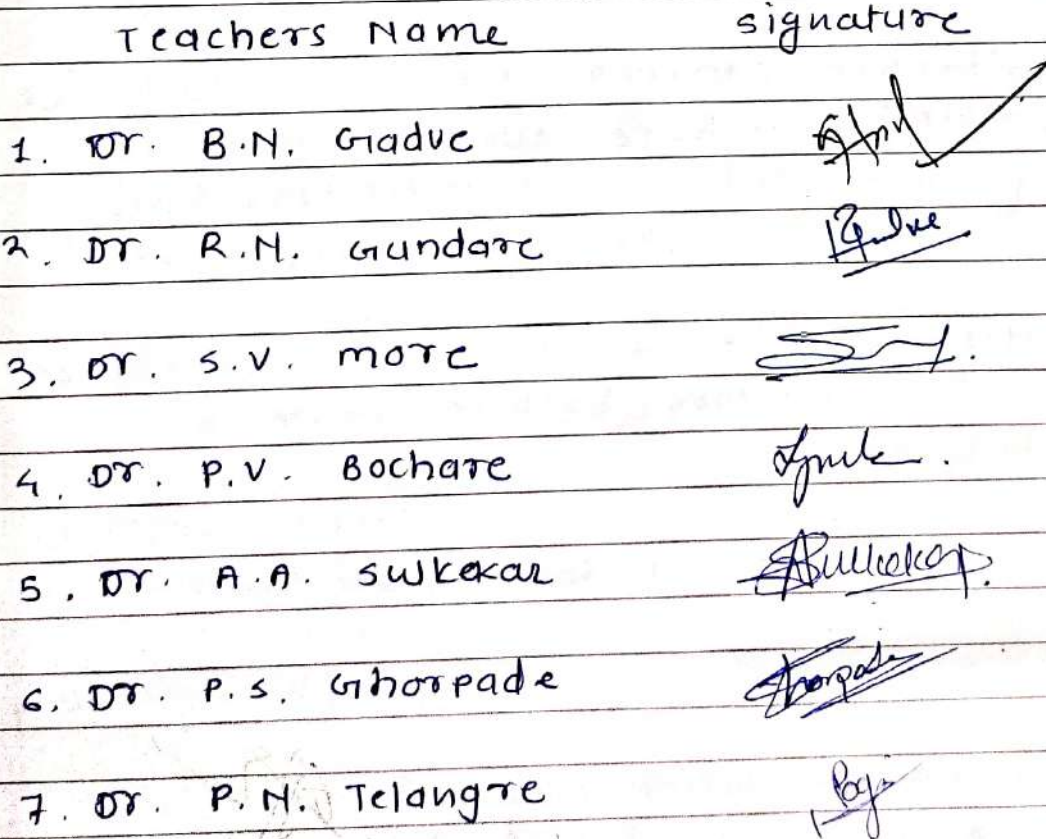 Teachers Name signature
1. Dr. B.N. Gadve
2. Dr. R.N. Gundare
3. Dr. S.V. more
4. Dr. P.V. Bochare
5. Dr. A.A. Sulkekar
6. Dr. P.S. Ghorpade
7. Dr. P.N. Telangre